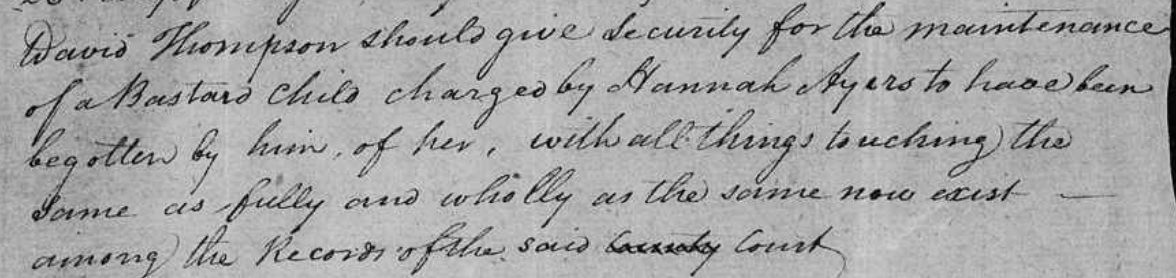 David Thompson should give Security for the maintenance
of a Bastard Child charged by Hannah Ayers to have been
begotten by him, of her, with all things touching the
same as fully and wholly as the same now exist —
among the Records of the said ~~County~~ Court